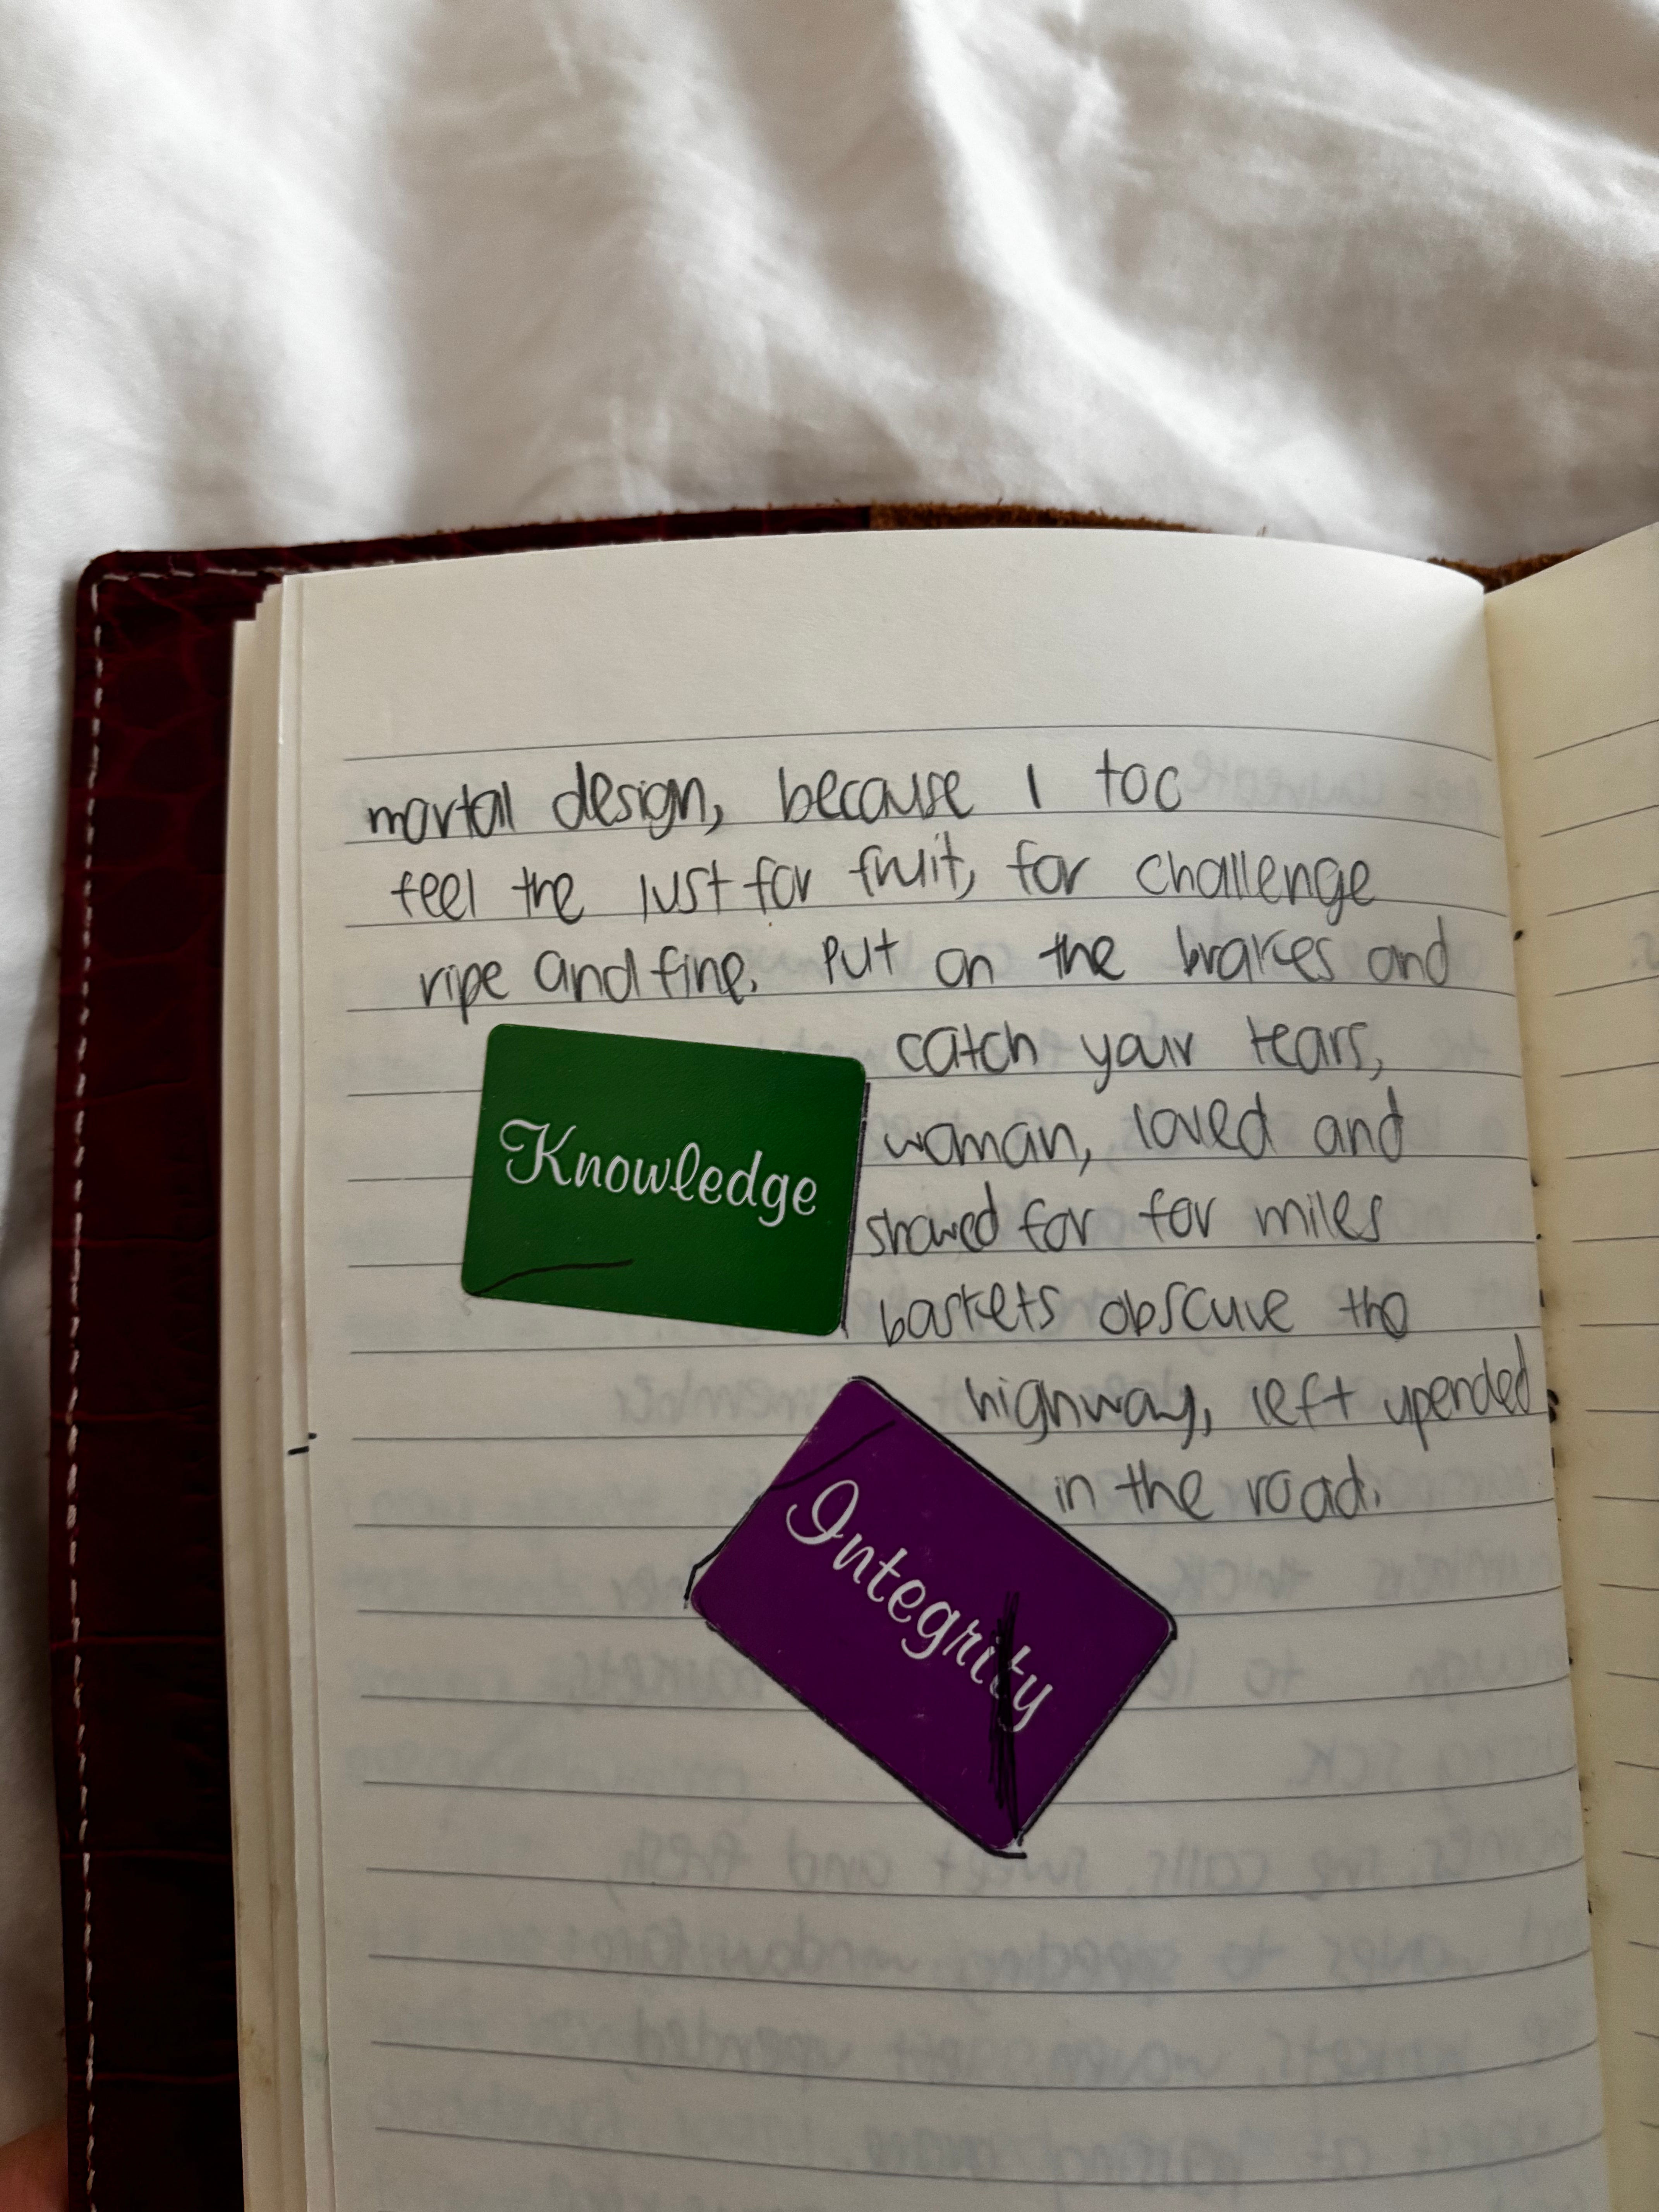 mortal design, because I too
feel the lust for fruit, for challenge
ripe and fine. Put on the brakes and
catch your tears,
woman, loved and
showed for for miles
baskets obscure the
highway, left upended
in the road.
Knowledge
Integrity